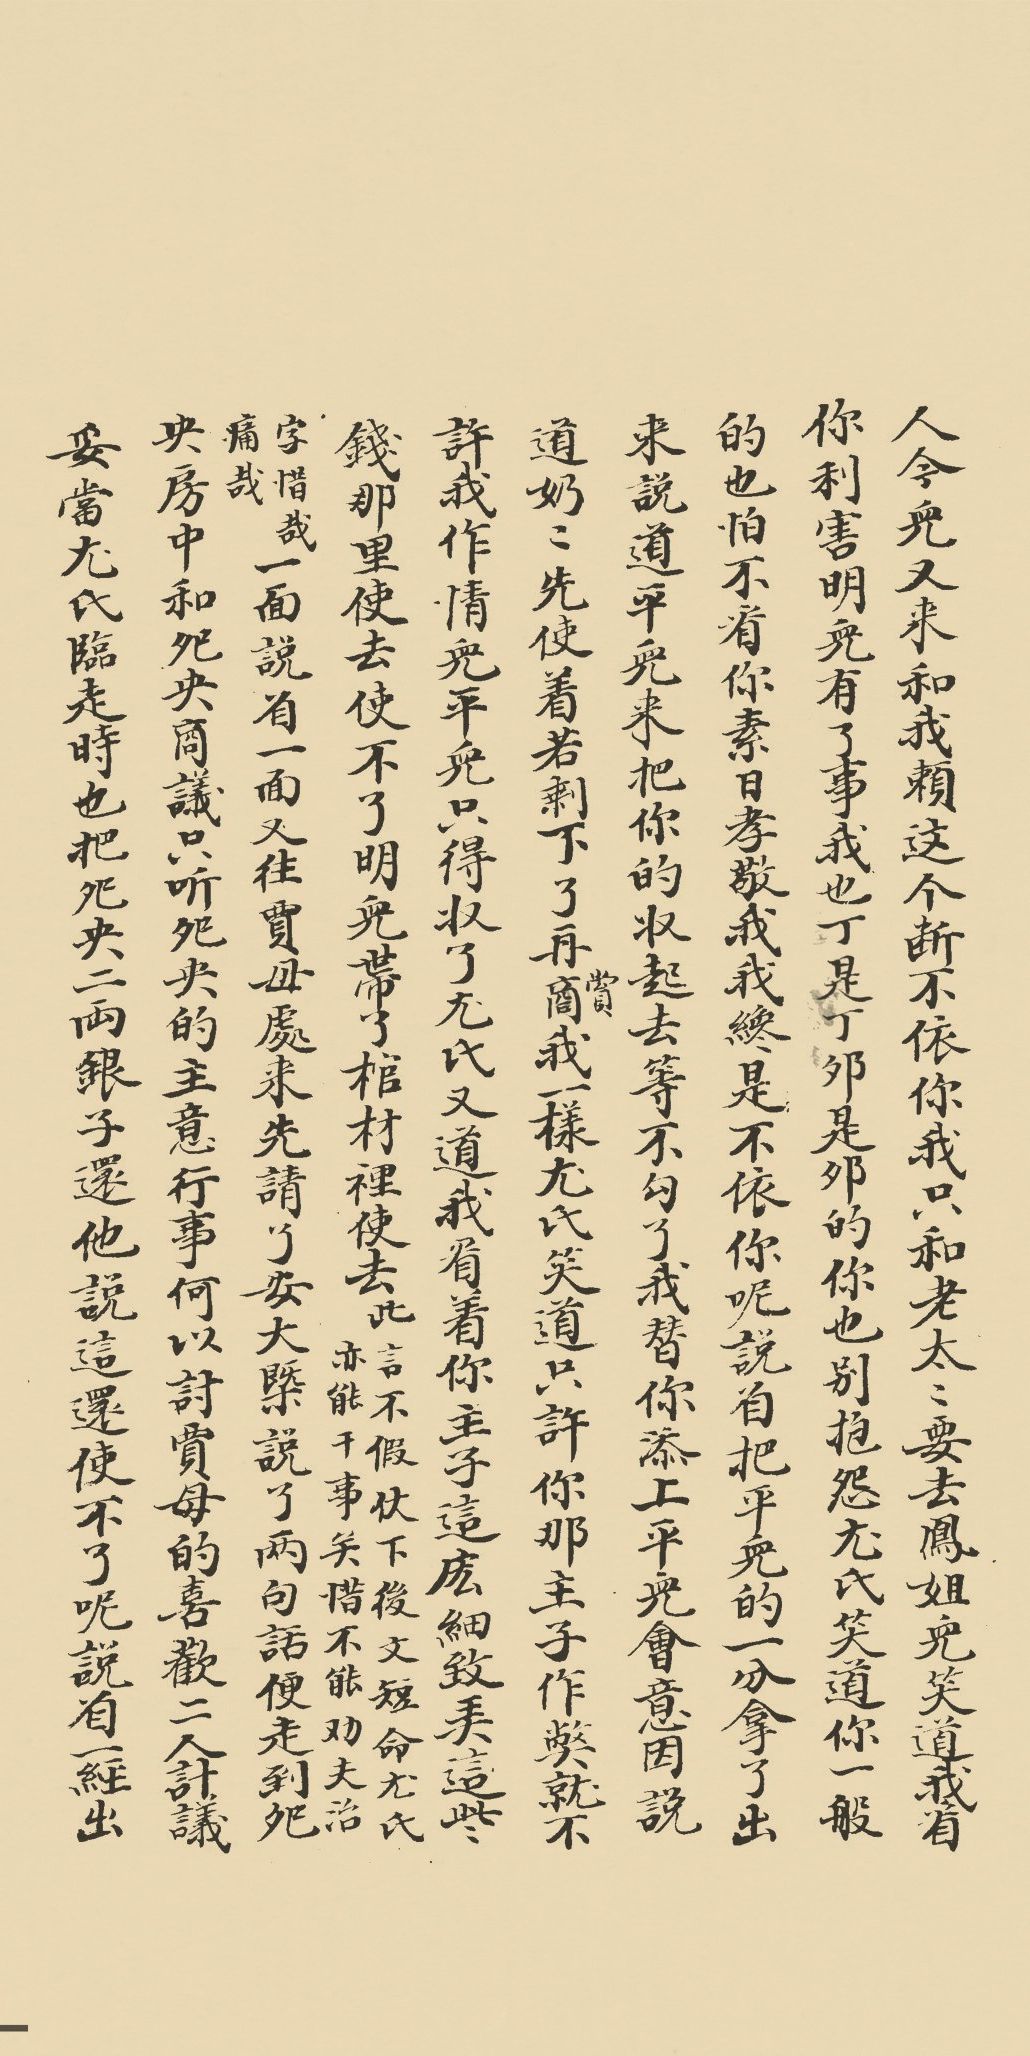 人今兒又来和我賴这个断不依你我只和老太〻要去鳳姐兒笑道我看
你利害明兒有了事我也丁是丁夘是夘的你也别抱怨尤氏笑道你一般
的也怕不看你素日孝敬我我纔是不依你呢説着把平兒的一分拿了出
来説道平兒来把你的收起去等不勾了我替你添上平兒會意因説
道奶〻先使着若剩下了再商賞我一樣尤氏笑道只許你那主子作獘就不
許我作情兒平兒只得收了尤氏又道我看着你主子這庅細致美這些
錢那里使去使不了明兒帶了棺材裡使去此言不假伏下後文短命尤氏
亦能干事矣惜不能劝夫治
字惜哉
痛哉
一面説着一面又往賈母處来先請了安大槩説了兩句話便走到夗
央房中和夗央商議只听夗央的主意行事何以討賈母的喜歡二人計議
妥當尤氏臨走時也把夗央二両銀子還他説這還使不了呢説着一経出